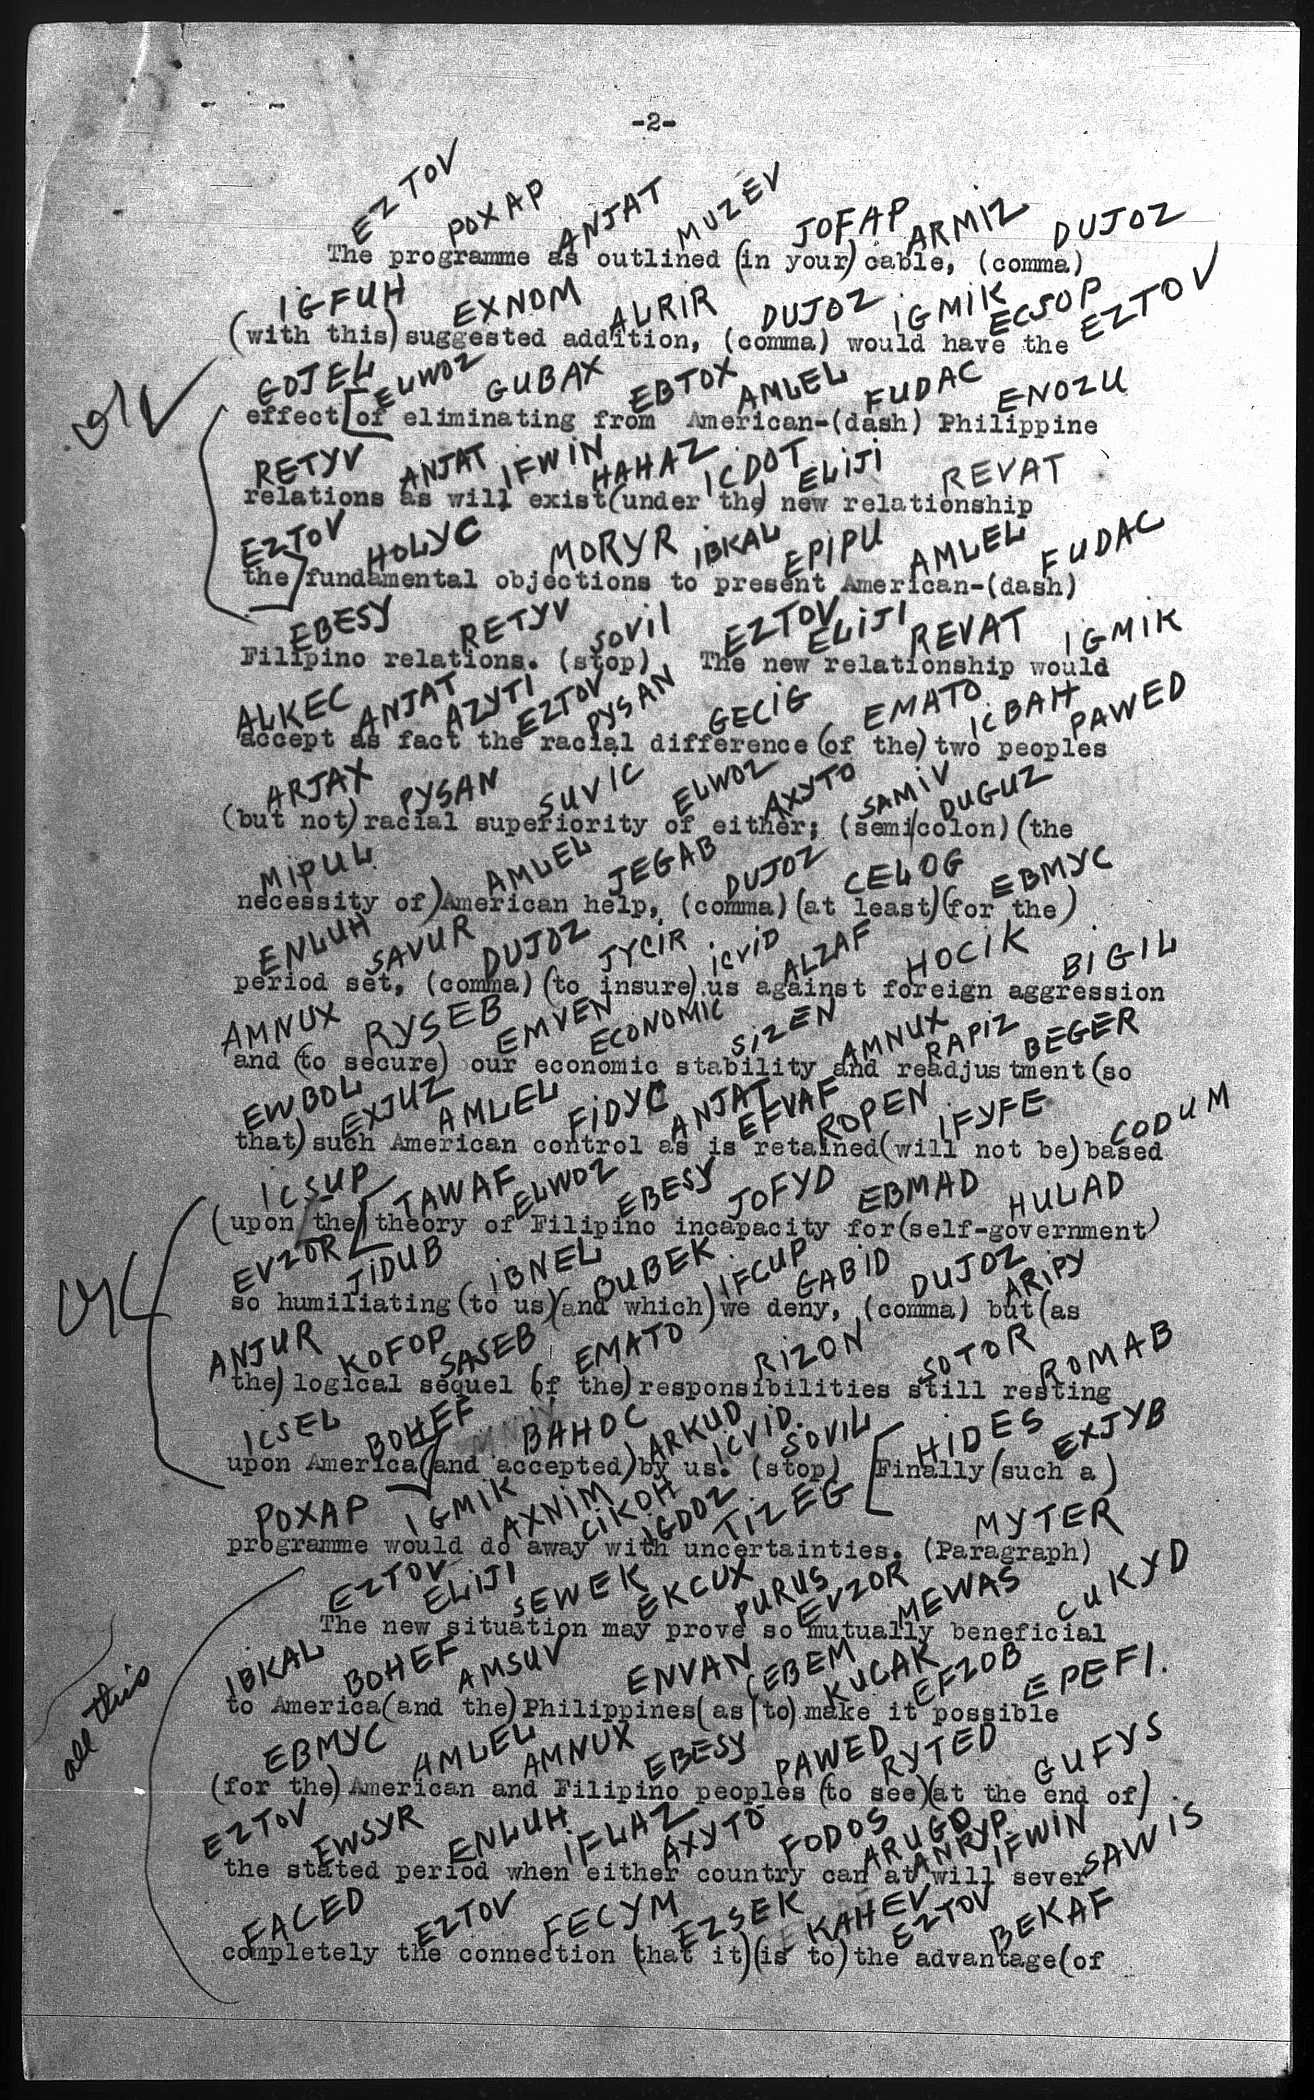 -2-
EZTOV POXAP ANJAT MUZEV JOFAP ARMIZ DUJOZ
The programme as outlined (in your) cable, (comma)
IGFUH EXNOM AURIR DUJOZ IGMIK ECSOP EZTOV
(with this) suggested addition, (comma) would have the
GOJEL ELWOZ GUBAX EBTOX AMLEL FUDAC ENOZU
effect [of eliminating from American-(dash) Philippine
RETYV ANJAT IFWIN HAHAZ ICDOT ELIJI REVAT
relations as will exist(under the) new relationship
EZTOV HOLYC MORYR IBKAL EPIPU AMLEL FUDAC
the] fundamental objections to present American-(dash)
EBESY RETYV SOVIL EZTOV ELIJI REVAT IGMIK
Filipino relations. (stop) The new relationship would
ALKEC ANJAT AZYTI EZTOV PYSAN GECIG EMATO ICBAH PAWED
accept as fact the racial difference (of the) two peoples
ARJAX PYSAN SUVIC ELWOZ AXYTO SAMIV DUGUZ
(but not) racial superiority of either; (semi/colon) (the
MIPUL AMLEL JEGAB DUJOZ CELOG EBMYC
necessity of) American help, (comma) (at least) (for the)
ENLUH SAVUR DUJOZ JYCIR ICVID ALZAF HOCIK BIGIL
period set, (comma) (to insure) us against foreign aggression
AMNUX RYSEB EMVEN ECONOMIC SIZEN AMNUX RAPIZ BEGER
and (to secure) our economic stability and readjustment (so
EWBOL EXJUZ AMLEL FIDYC ANJAT EFVAF ROPEN IFYFE CODUM
that) such American control as is retained (will not be) based
ICSUP TAWAF ELWOZ EBESY JOFYD EBMAD HULAD
(upon /the/ [theory of Filipino incapacity for (self-government)
EVZOR JIDUB IBNEL BUBEK IFCUP GABID DUJOZ ARIPY
so humiliating (to us)(and which) we deny, (comma) but (as
ANJUR KOFOP SASEB EMATO RIZON SOTOR ROMAB
the) logical sequel (of the) responsibilities still resting
ICSEL BOHEF BAHOC ARKUD ICVID. SOVIL HIDES EXJYB
upon America (and accepted) by us. (stop) [Finally (such a)
POXAP IGMIK AXNIM CIKOH IGDOZ TIZEG MYTER
programme would do away with uncertainties. (Paragraph)
EZTOV ELIJI SEWEK EKCUX PURUS EVZOR MEWAS CUKYD
The new situation may prove so mutually beneficial
IBKAL BOHEF AMSUV ENVAN CEBEM KUCAK EFZOB EPEFI.
to America (and the) Philippines (as to) make it possible
all this
EBMYC AMLEL AMNUX EBESY PAWED RYTED GUFYS
(for the) American and Filipino peoples (to see)(at the end of)
EZTOV EWSYR ENLUH IFLAZ AXYTO FODOS ARUGO ANRYP IFWIN SAWIS
the stated period when either country can at will sever
FACED EZTOV FECYM EZSEK KAHEV EZTOV BEKAF
completely the connection (that it)(is to) the advantage (of